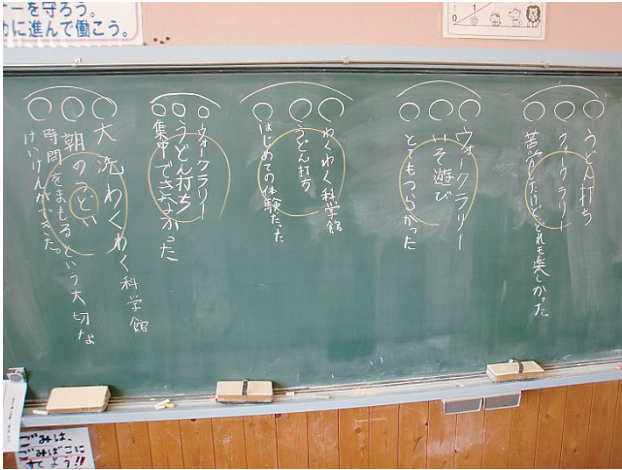 ーを守ろう。
めに進んで働こう。
0
1
うどん打ち
ウォークラリー
苦労したけどとれも楽しかった
ウォークラリー
いそ遊び
とてもつらかった
わくわく科学館
うどん打ち
はじめての体験だった
ウォークラリー
うどん打ち
集中できなかった
大洗わくわく科学館
朝のつどい
時間をまもるという大切な
けいけんができた。
ごみは、
ごみばこに
すてよう!!